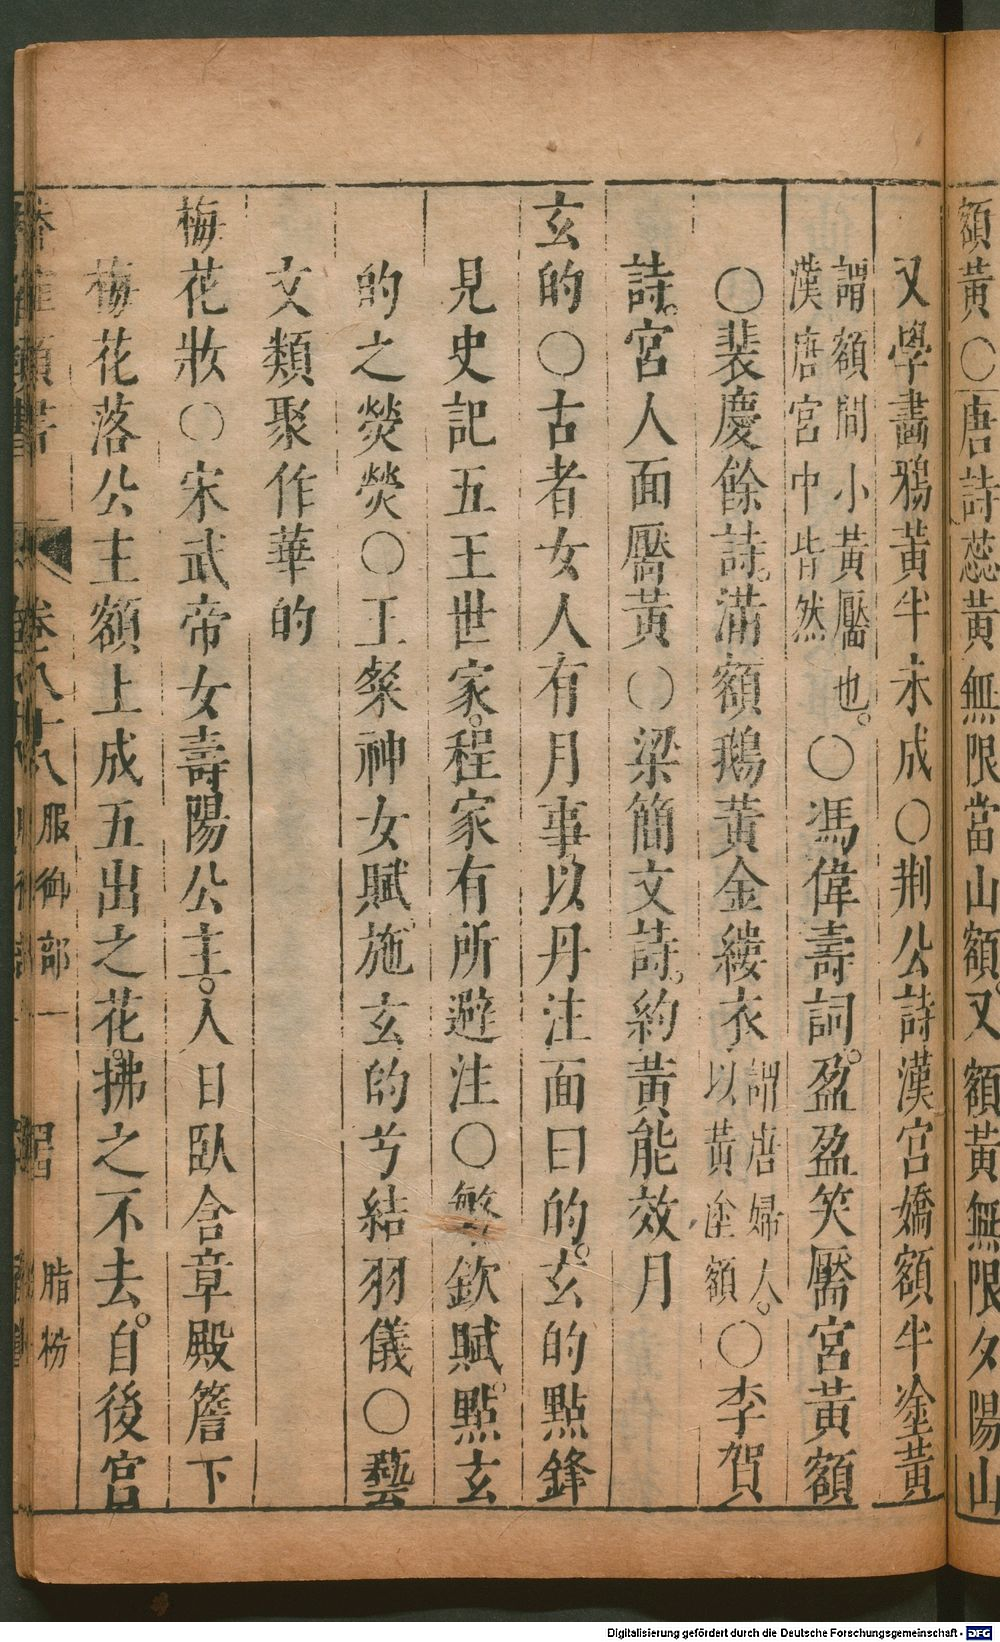 額黃〇唐詩蕊黃無限當山額又額黃無限夕陽山
又學畵鴉黃半未成〇荆公詩漢宮嬌額半塗黃
謂額間小黃靨也
漢唐宮中皆然
〇馮偉壽詞盈盈笑靨宮黃額
〇裴慶餘詩滿額鵝黃金縷衣
謂唐婦人
以黃塗額
〇李賀
詩宮人面靨黃〇梁簡文詩約黃能效月
玄的〇古者女人有月事以丹注面曰的玄的點鋒
見史記五王世家程家有所避注〇繁欽賦點玄
的之熒熒〇王粲神女賦施玄的兮結羽儀〇藝
文類聚作華的
梅花妝〇宋武帝女壽陽公主人日臥含章殿簷下
梅花落公主額上成五出之花拂之不去自後宮
卷八十八 服御部一 脂粉
Digitalisierung gefördert durch die Deutsche Forschungsgemeinschaft - DFG